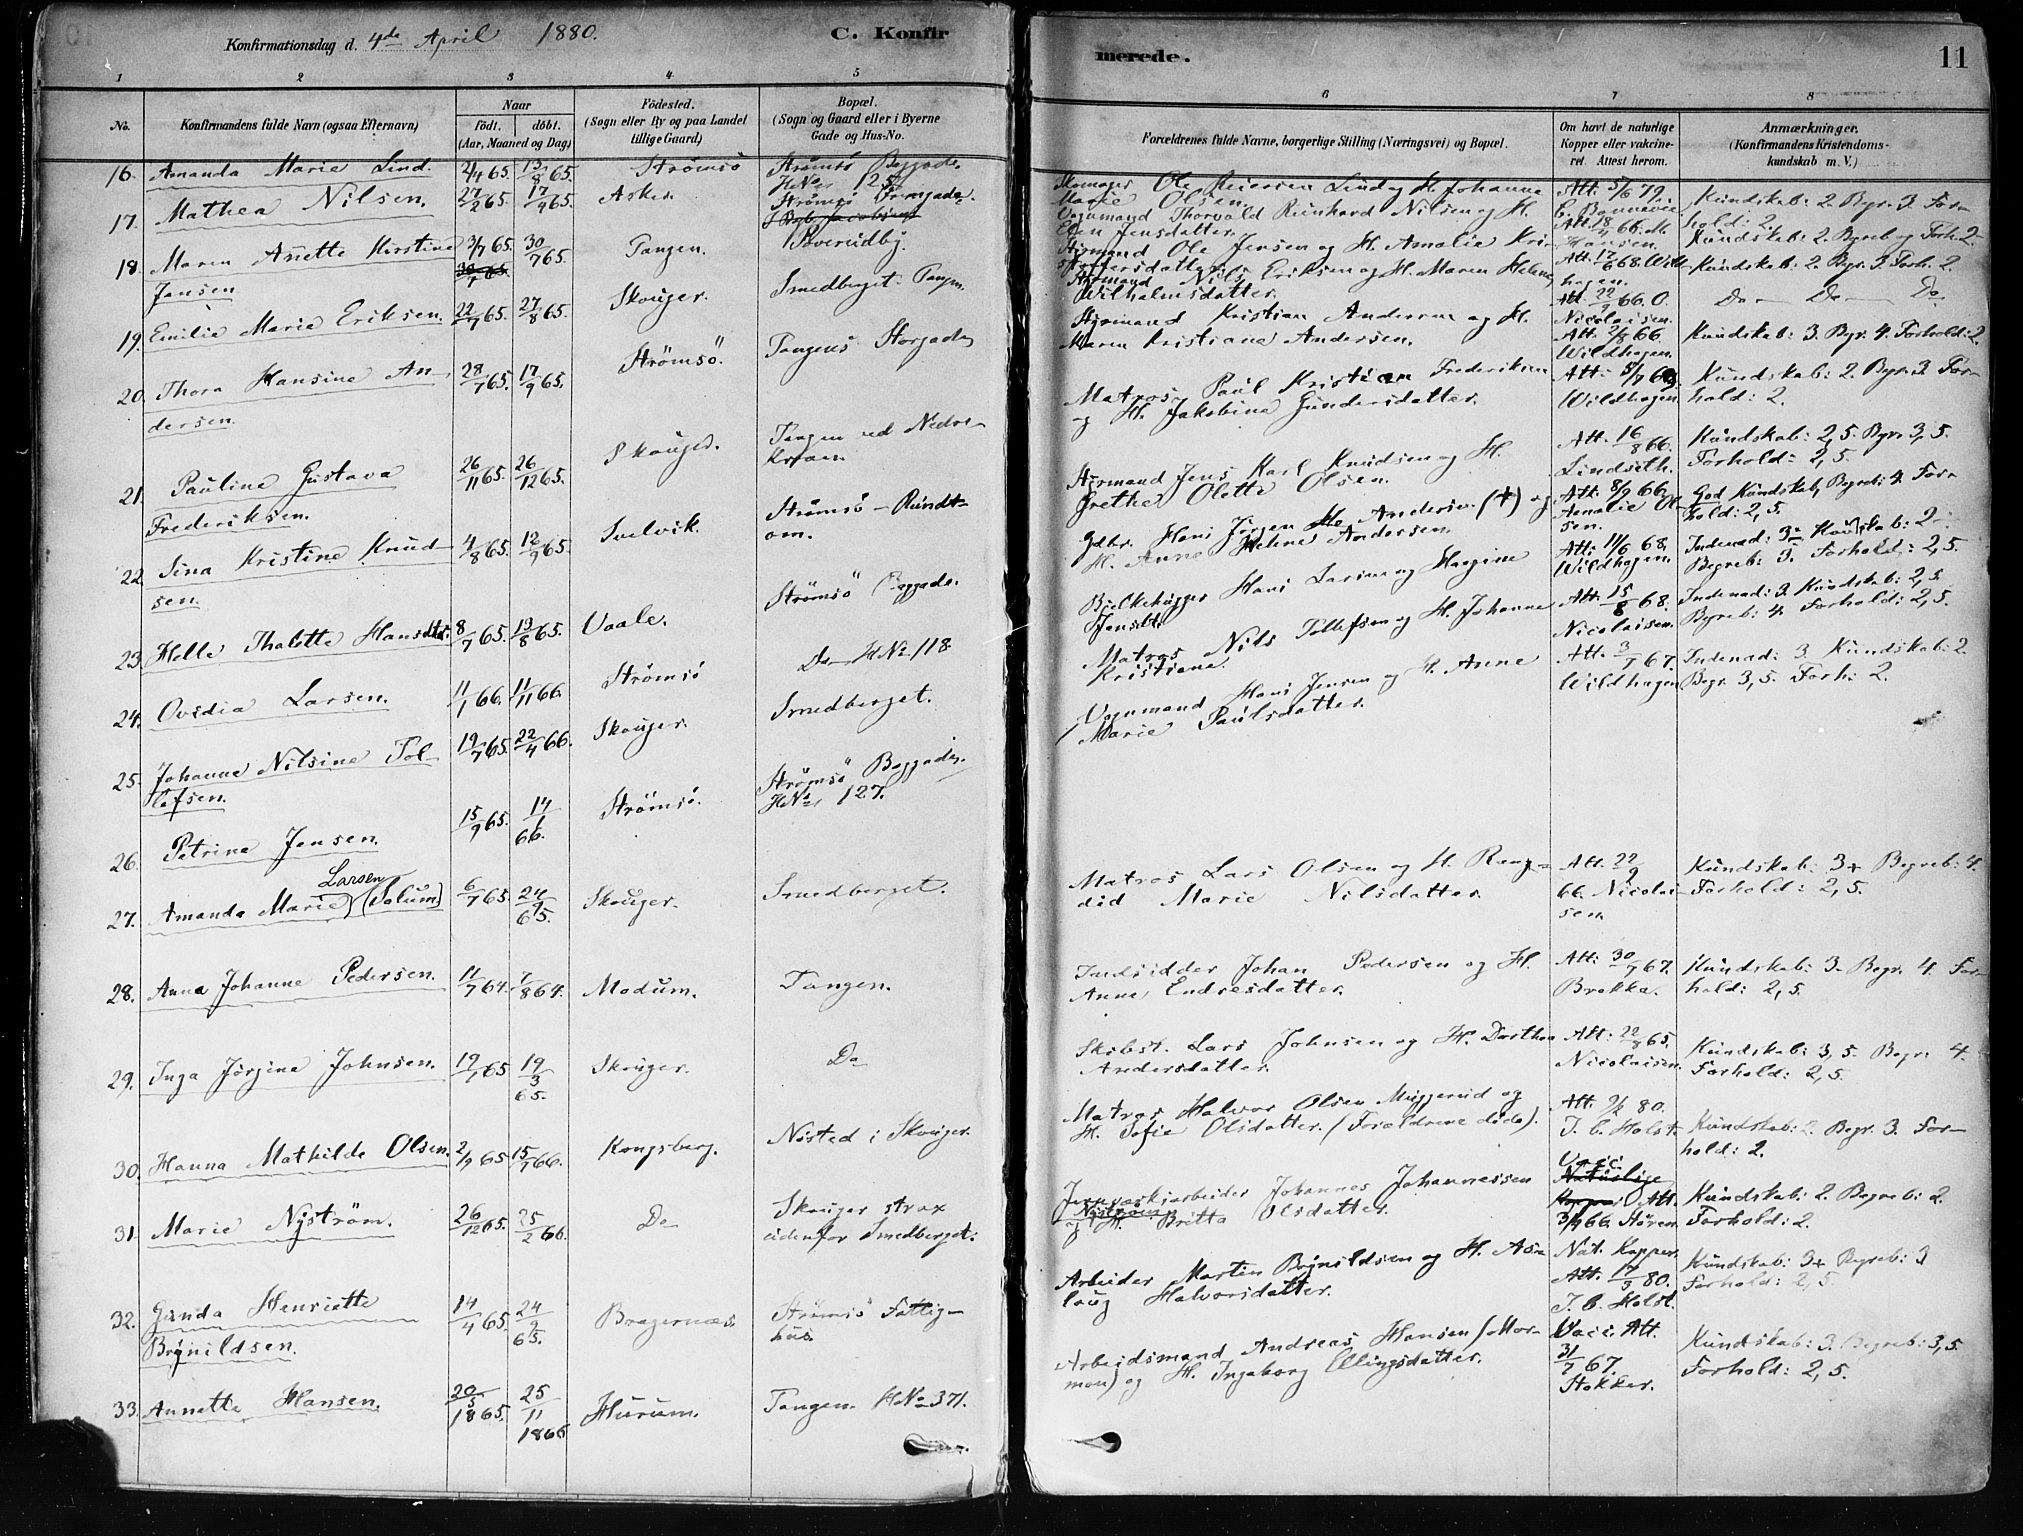 Konfirmationsdag d. 4de April 1880.
C. Konfir
1 2 3 4 5
No.
Konfirmandens fulde Navn (ogsaa Efternavn)
Naar
födt. döbt.
(Aar, Maaned og Dag)
Födested.
(Sogn eller By og paa Landet
tillige Gaard)
Bopæl.
(Sogn og Gaard eller i Byerne
Gade og Hus-No.
16. Amanda Marie Lind. 2/4 65. 13/8 65. Strömsö Strömsö Baggade.
H No. 125.
17. Mathea Nilsen. 27/2 65. 17/4 65. Asker.
18. Maren Anette Kirstine 3/7 65. 30/7 65. Tangen. Bverudby.
Jansen
19. Emilie Marie Eriksen. 22/7 65. 27/8 65. Skouger. Smedberget. Tangen.
20. Thora Hansine An- 28/7 65. 17/9 65. Strömsö. Tangens Storgade
dersen.
21. Pauline Gustava 26/11 65. 26/12 65. Skouger. Tangen ved Nedre-
Frederiksen.
22. Sina Kristine Knud- 4/8 65. 12/9 65. Svelvik. Strömsö - Rundt-
sen. om.
23. Helle Thalette Hansdtr. 8/7 65. 13/8 65. Vaale. Strömsö Baggade.
24. Ovidia Larsen. 11/1 66. 11/11 66. Strömsö Do H No 118.
25. Johanne Nilsine Tol- 19/7 65. 22/4 66. Skouger. Smedberget.
lefsen.
26. Petrine Jensen. 15/9 65. 14/1 66. Strömsö. Strömsö Baggade.
H No. 127.
27. Amanda Marie Larsen (Solum) 6/7 65. 24/9 65. Skouger. Smedberget.
28. Anna Johanne Pedersen. 11/7 64. 7/8 64. Modum. Tangen.
29. Inga Jörgine Johnsen. 19/1 65 19/3 65. Skouger. Do
30. Hanna Mathilde Olsen. 2/9 65 15/7 66. Kongsberg. Nösted i Skouger.
31. Marie Nyström. 26/12 65. 25/2 66. Do Skouger strax
udenfor Smedberget.
32. Gunda Henriette 14/4 65. 24/9 65. Bragernæs. Strömsö Fattig-
Brynildsen. hus.
33. Annette Hansen. 20/5 1865. 25/11 1865 Hurum. Tangen. H No 371.
merede. 11
6 7 8
Forældrenes fulde Navne, borgerlige Stilling (Næringsvei) og Bopæl.
Om havt de naturlige
Kopper eller vakcine-
ret. Attest herom.
Anmærkninger.
(Konfirmandens Kristendoms-
kundskab m. V.)
Skomager Ole Reiersen Lind og H. Johanne Att. 5/6 79. Kundskab: 2. Begr. 3. For-
Marie Olsen. hold: 2.
Vognmand Thorvald Reinhard Nilsen og H. Kundskab: 2. Begreb og Forh. 2.
Elen Jensdatter. Hansen.
Styrmand Ole Jensen og H. Amalie Kri- Att. 17/6 68. Wild- Kundskab: 2. Begr. 3. Forh. 2.
stoffersdatter. hagen.
Styrmand Nils Eriksen og H. Maren Helene Att. 22/9 66. O. Do Do Do
Wilhelmsdatter. Nicolaisen.
Styrmand Kristian Andersen og H. Att. 2/8 66. Kundskab: 3. Begr. 4. Forhold: 2.
Maren Kristiane Andersen. Wildhagen.
Matros Paul Kristian Frederiksen Att. Kundskab: 2. Begr. 3. For-
og H. Jakobine Gundersdatter. Wildhagen hold: 2.
Styrmand Jens Karl Knudsen og H. Att. 16/8 66. Kundskab: 2,5. Begr. 3,5.
Grethe Olette Olsen. Lindseth. Forhold: 2,5.
Hans Jörgen Andersen (†) og Att. 8/9 66. God Kundskab, Begreb: 4. For-
H. Anne Helene Andersen. Amalie Olsen. hold: 2,5.
Bjelkehugger Hans Larsen og Att. 11/6 68. Indenad: 3 Kundskab: 2
Jensdtr. Wildhagen. Begreb: 3. Forhold: 2,5.
Matros Nils Tollefsen og H. Johanne Att. 15/8 68. Indenad: 3. Kundskab: 2,5.
Kristiane. Nicolaisen. Begreb: 4. Forhold: 2,5.
Vognmand Hans Jensen og H. Anne Att. 3/7 67. Indenad: 3. Kundskab: 2.
Marie Paulsdatter. Wildhagen Begr. 3,5. Forh: 2.
Matros Lars Olsen og H. Rang- Att. 22/9 Kundskab: 3+ Begreb: 4.
did Marie Nilsdatter. 66. Nicolai- Forhold: 2,5.
sen.
Inderidder Johan Pedersen og H. Att: 30/7 67. Kundskab: 3. Begr. 4. For-
Anne Endresdatter. Brekka. hold: 2,5.
Skibst. Lars Johnsen og H. Dorthea Att. 22/8 65. Kundskab: 3,5. Begr. 4.
Andersdatter. Nicolaisen. Forhold: 2,5.
Matros Halvor Olsen Muggerud og Att. 80. Kundskab: 2. Begr. 3. For-
H. Sofie Olsdatter. (Forældrene döde). J. C. Holst. hold: 2.
Johannes Johannessen Vacc. Naturlige
Nyström og H. Britta Olsdatter. Kopper Att. Kundskab: 2. Begreb: 2.
3/7 66. Stören. Forhold: 2.
Arbeider Martin Brynildsen og H. As- Nat. Kopper. Kundskab: 3+ Begreb: 3
laug Halvorsdatter. Att. 17/3 80. Forhold: 2,5.
J. C. Holst.
Arbeidsmand Andreas Hansen (Mor- Vacc. Att. Kundskab: 3. Begreb: 3,5.
mon) og H. Ingeborg Ellingsdatter. 31/7 67. Forhold: 2,5.
Stokker.